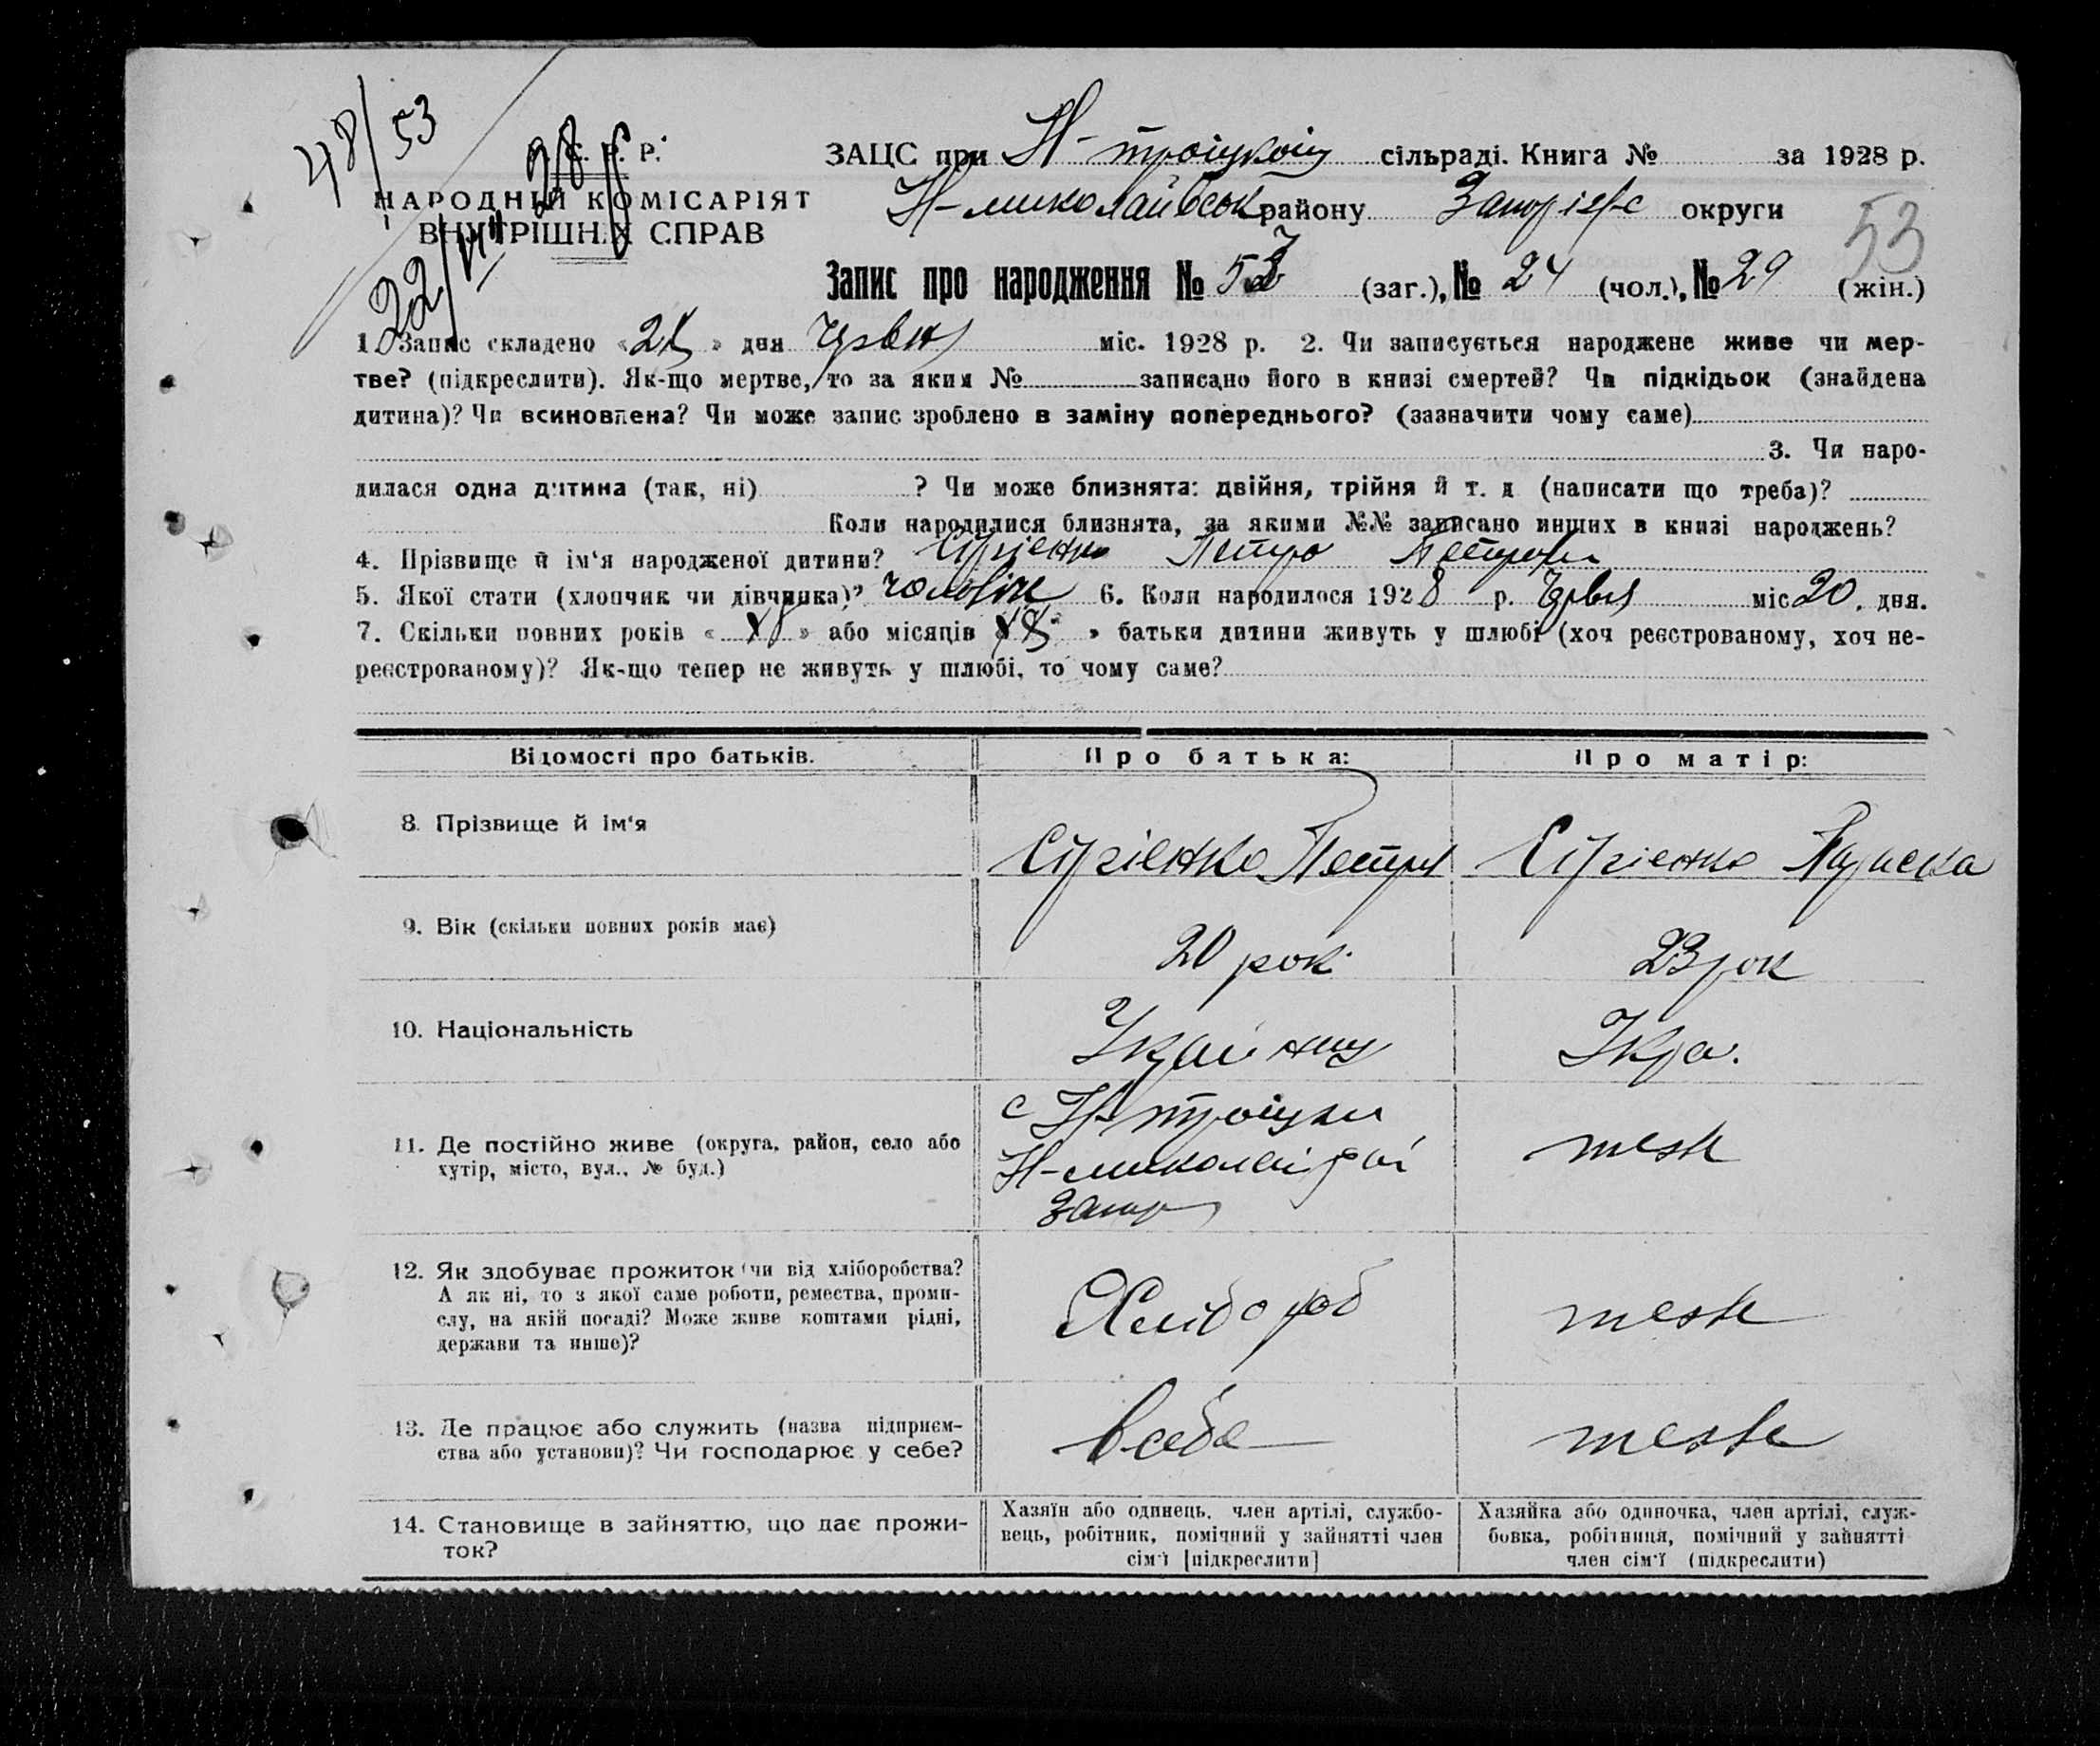 48/53
22/VI 28 р
С. Р. Р.
НАРОДНІЙ КОМІСАРІЯТ
ВНУТРІШНІХ СПРАВ
ЗАЦС при Н-троіцкоіу сільраді. Книга № за 1928 р.
Н-миколаївськ району Запоріж округи
53
Запис про народження № 53 (заг.), № 24 (чол.), № 29 (жін.)
1. Запис складено « » дня Червня міс. 1928 р. 2. Чи записується народжене живе чи мер-
тве? (підкреслити). Як-що мертве, то за яким № записано його в книзі смертей? Чи підкідьок (знайдена
дитина)? Чи всиновлена? Чи може запис зроблено в заміну попереднього? (зазначити чому саме)
3. Чи наро-
дилася одна дитина (так, ні) ? Чи може близнята: двійня, трійня й т. д (написати що треба)?
Коли народилися близнята, за якими №№ записано инших в книзі народжень?
4. Прізвище й ім'я народженої дитини? Сіргіенко Петро Петрови
5. Якої стати (хлопчик чи дівчинка)? чоловік 6. Коли народилося 1928 р. Червня міс 20. дня.
7. Скільки повних років « » або місяців « » батьки дитини живуть у шлюбі (хоч реєстрованому, хоч не-
реєстрованому)? Як-що тепер не живуть у шлюбі, то чому саме?
Відомості про батьків. Про батька: Про матір:
8. Прізвище й ім'я Сіргіенко Петру Сіргіенко
9. Вік (скільки повних років має) 20 рокі 23 рок
10. Національність Україниу Укра.
11. Де постійно живе (округа, район, село або
хутір, місто, вул., № буд.)
с Н-троіцки
Н-миколаі рай
Запор
теж
12. Як здобуває прожиток (чи від хліборобства?
А як ні, то з якої саме роботи, ремества, проми-
слу, на якій посаді? Може живе коштами рідні,
держави та инше)?
Хлібороб теж
13. Де працює або служить (назва підприєм-
ства або установи)? Чи господарює у себе?
в себе теж
14. Становище в зайняттю, що дає прожи-
ток?
Хазяїн або одинець, член артілі, службо-
вець, робітник, помічний у зайнятті член
сім'ї [підкреслити]
Хазяйка або одиночка, член артілі, служ-
бовка, робітниця, помічний у зайнятті
член сім'ї (підкреслити)